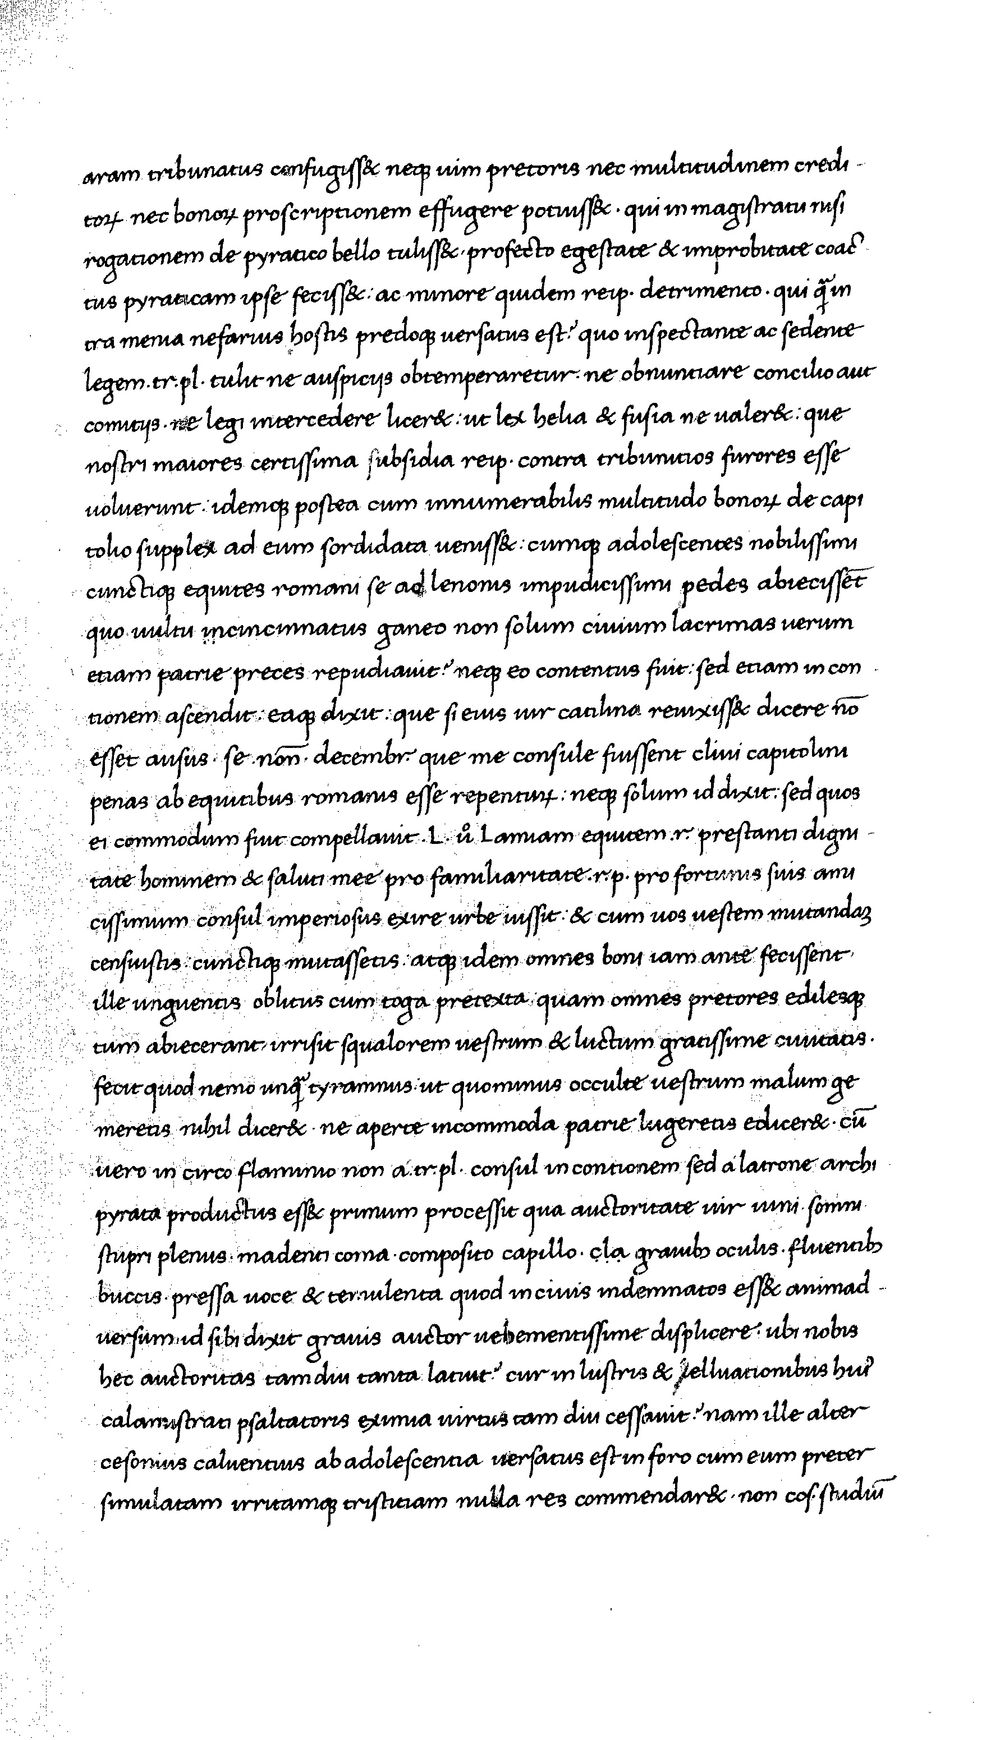 aram tribunatus confugiss& neq; uim pretoris nec multitudinem credi-
toꝝ nec bonoꝝ proscriptionem effugere potuiss&. qui in magistratu nisi
rogationem de pyratico bello tuliss&. profecto egestate & improbitate coac̄
tus pyraticam ipse feciss&: ac minore quidem reip. detrimento. qui q̄ in
tra menia nefarius hostis predoq; uersatus est? quo inspectante ac sedente
legem.tr.pl. tulit ne auspicijs obtemperaretur. ne obnuntiare concilio aut
comitijs. ne legi intercedere licer&: ut lex helia & fusia ne ualer&: que
nostri maiores certissima subsidia reip. contra tribunitios furores esse
uoluerunt: idemq; postea cum innumerabilis multitudo bonoꝝ de capi
tolio supplex ad eum sordidata ueniss&: cumq; adolescentes nobilissimi
cunctiq; equites romani se ad lenonis impudicissimi pedes abiecissēt
quo uultu incincinnatus ganeo non solum ciuium lacrimas uerum
etiam patrie preces repudiauit? neq; eo contentus fuit: sed etiam in con
tionem ascendit: eaq; dixit: que si eius uir catilina reuixiss& dicere nō
esset ausus. se .non̄. decembr. que me consule fuissent cliui capitolini
penas ab equitibus romanis esse repentuꝝ: neq; solum id dixit: sed quos
ei commodum fuit compellauit .L. ů Lamiam equitem .r. prestanti digni-
tate hominem & saluti mee pro familiaritate .r.p. pro fortunis suis ami
cissimum consul imperiosus exire urbe iussit: & cum uos uestem mutandaꝫ
censuistis: cunctiq; mutassetis: atq; idem omnes boni iam ante fecissent.
ille unguentis oblitus cum toga pretexta. quam omnes pretores edilesq;
tum abiecerant. irrisit squalorem uestrum & luctum gratissime ciuitatis.
fecit quod nemo unq̄ tyrannus. ut quominus occulte uestrum malum ge
meretis nihil dicer&. ne aperte incommoda patrie lugeretis edicer&. cū
uero in circo flaminio non a.tr.pl. consul in contionem sed a latrone archi
pyrata productus ess& primum processit qua auctoritate uir uini. somni.
stupri plenus. madenti coma. composito capillo. grauib; oculis. fluentib;
buccis. pressa uoce & temulenta quod inciuis indemnatos ess& animad-
uersum. id sibi dixit grauis auctor uehementissime displicere: ubi nobis
hec auctoritas tamdiu tanta latuit? cur in lustris & helluationibus hui᾽
calamistrati psaltatoris eximia uirtus tam diu cessauit? nam ille alter
cesonius caluentius ab adolescentia uersatus est in foro cum eum preter
simulatam irritamq; tristitiam nulla res commendar&. non cos. studiū